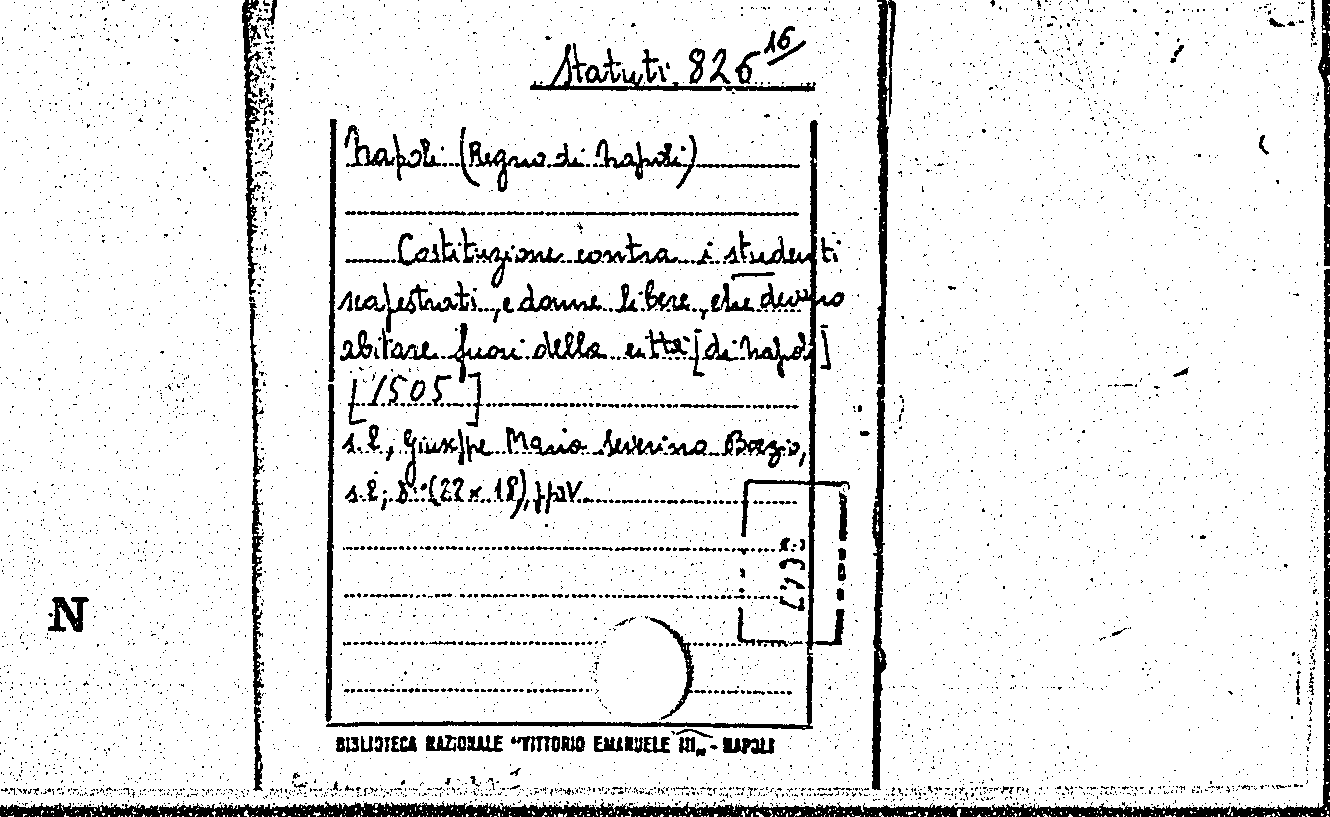 Statuti 826 16
Napoli (Regno di Napoli)
Costituzione contra i studenti
scapestrati, e donne libere, che devono
abitare fuori della città [di Napoli]
[1505]
s.l., Giuseppe Maria Severino Boezio,
s.i., 8° (22 x 18), pp.
N
BIBLIOTECA NAZIONALE "VITTORIO EMANUELE III" - NAPOLI